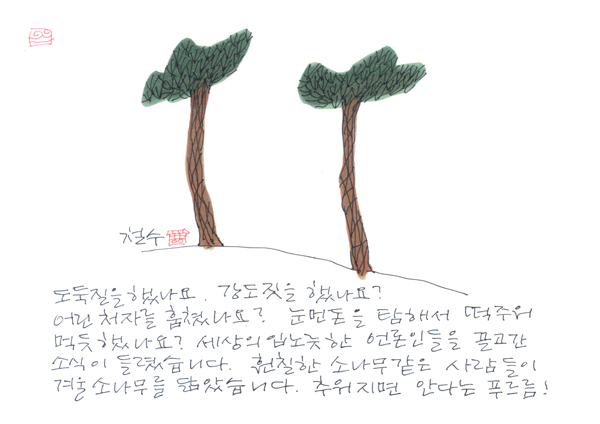 철수
도둑질을 했나요. 강도짓을 했나요?
어린 처자를 훔쳤나요? 눈먼돈을 탐해서 떡주워
먹듯했나요? 세상의 입노릇한 언론인들을 끌고간
소식이 들렸습니다. 훤칠한 소나무같은 사람들이
겨울 소나무를 닮았습니다. 추워지면 안다는 푸르름!